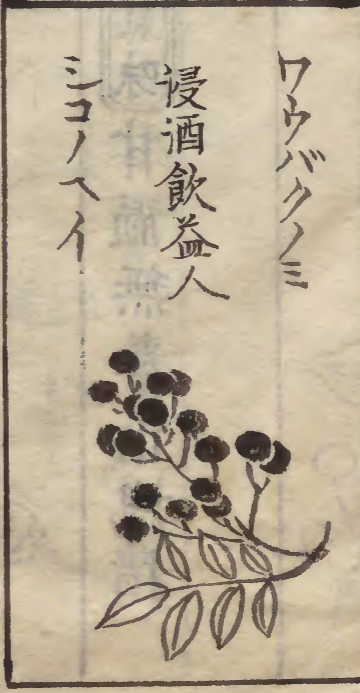 ワウバクノミ
浸酒飲益人
シコノヘイ